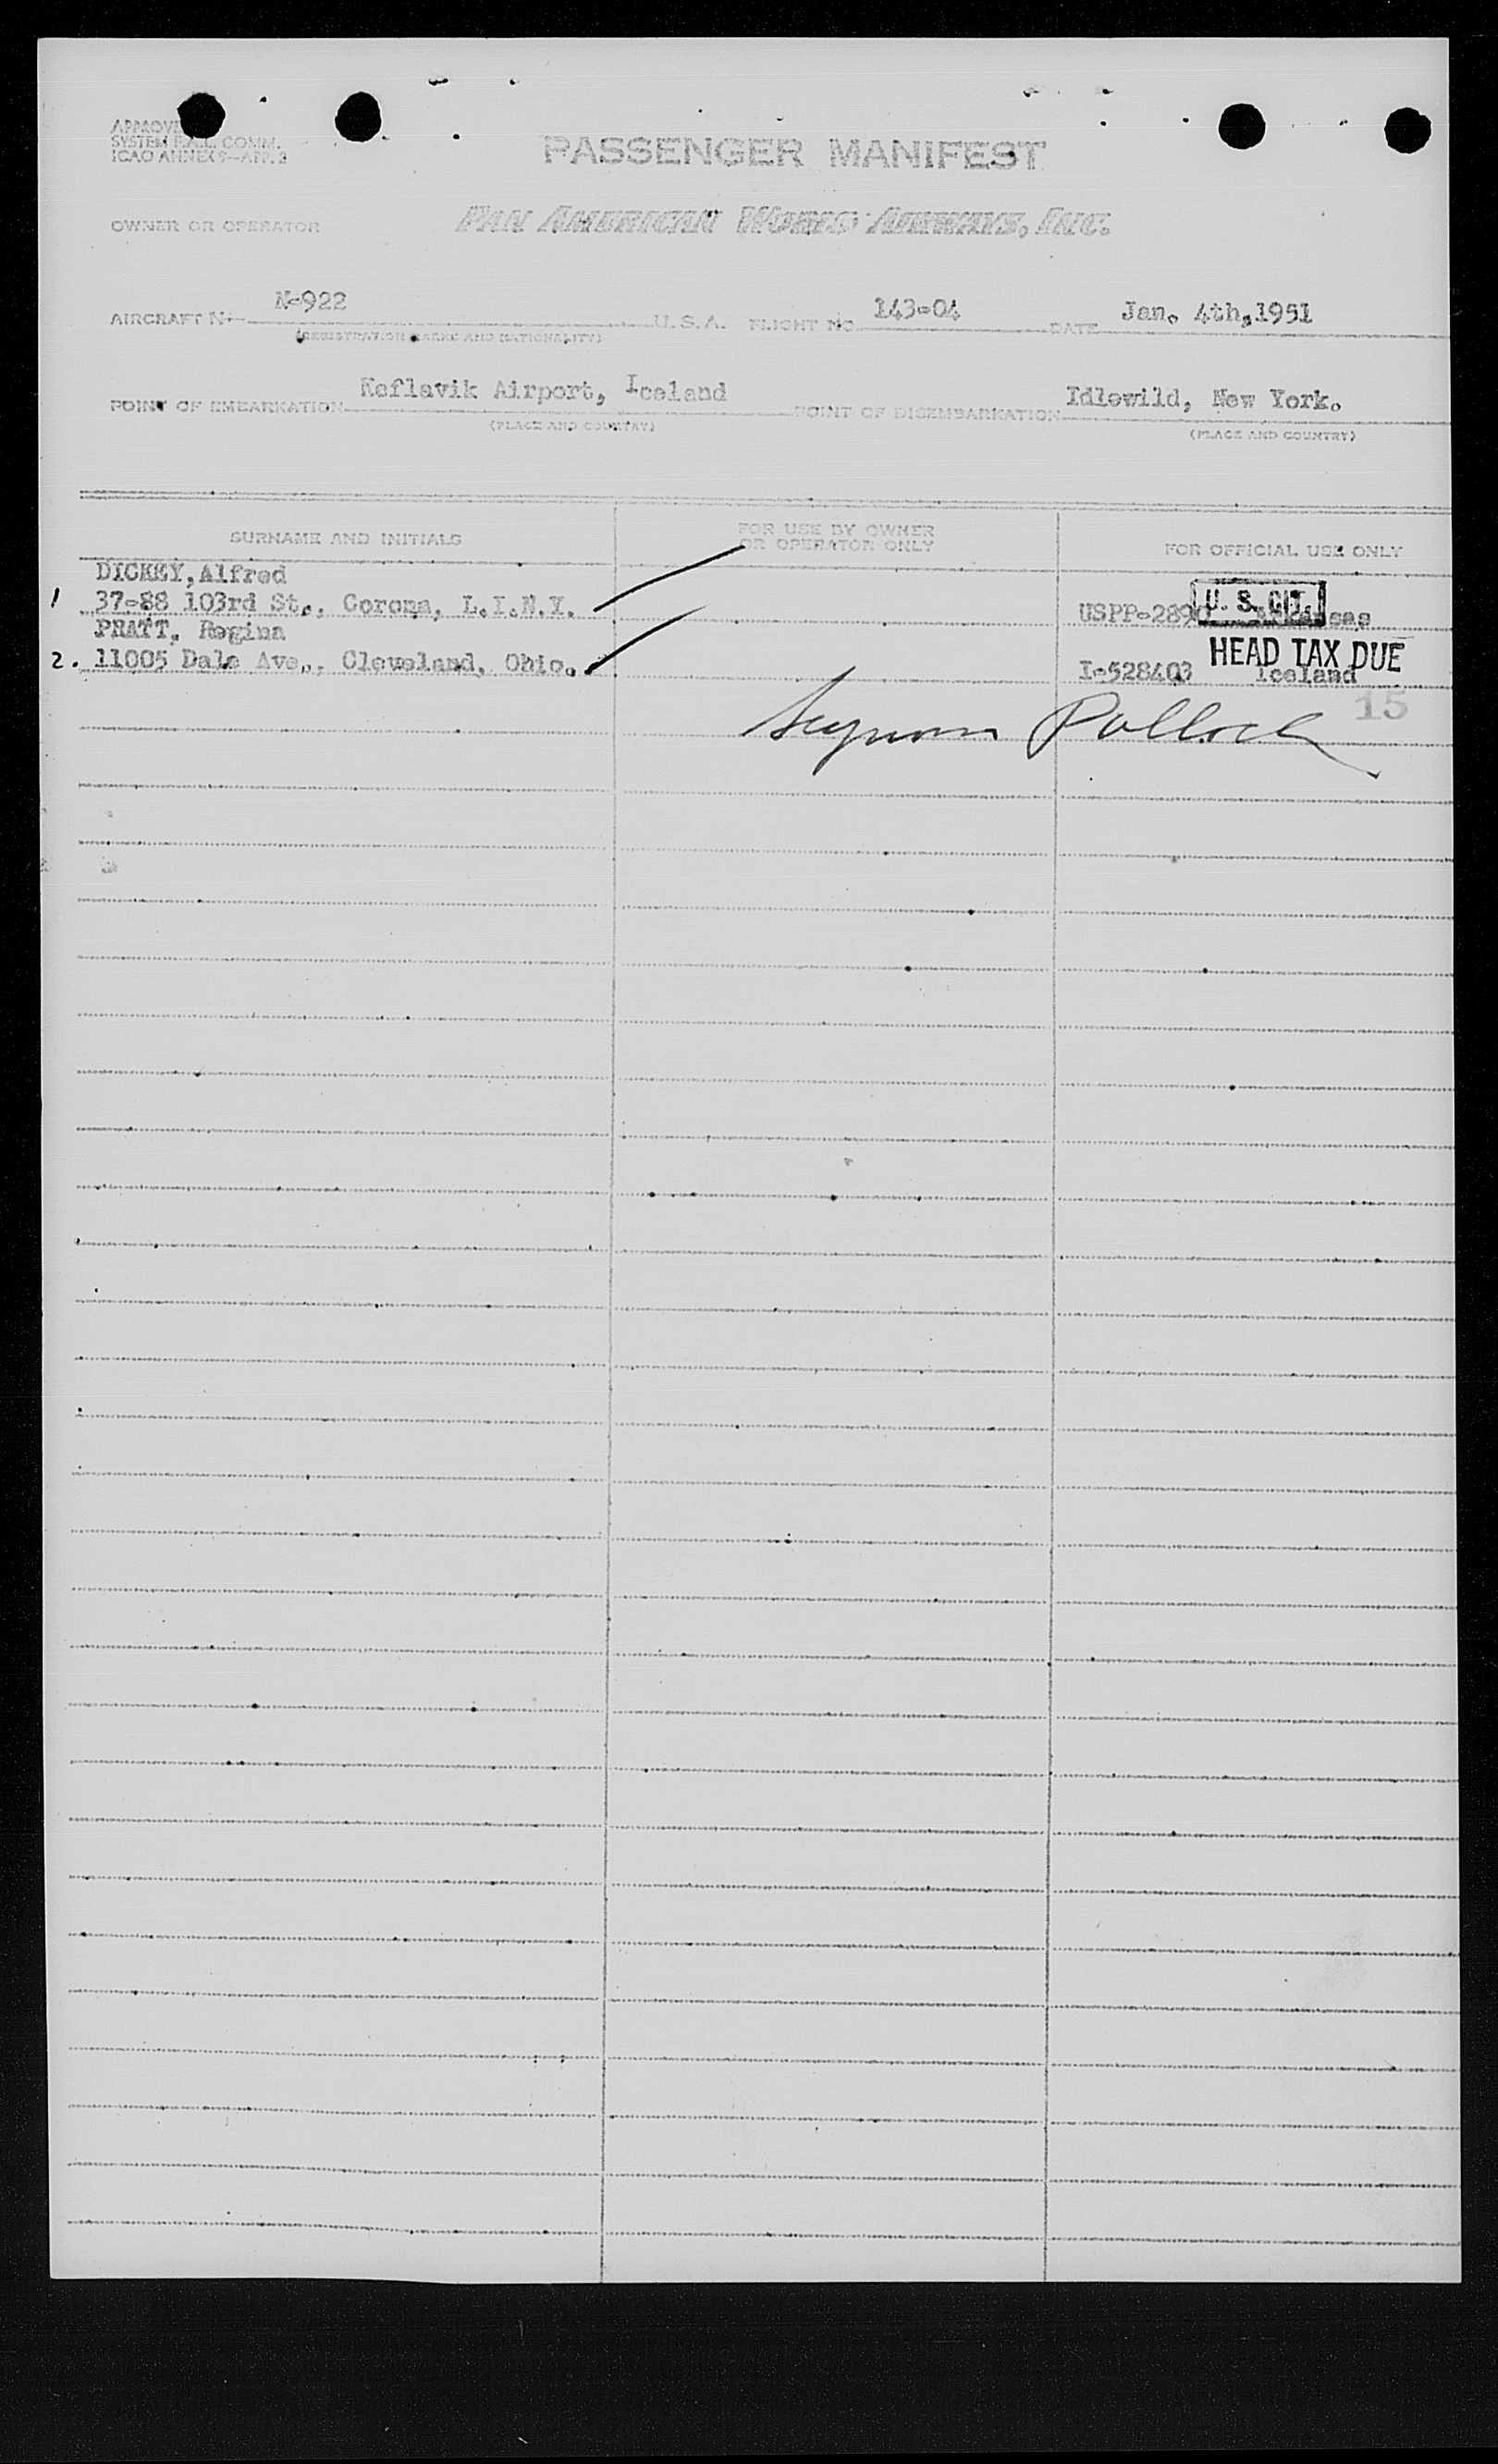 SYSTEM F.A.L. COMM.
ICAO ANNEX 9—APP. 2
PASSENGER MANIFEST
OWNER OR OPERATOR PAN AMERICAN WORLD AIRWAYS, INC.
AIRCRAFT N- N-922 U.S.A. FLIGHT NO. 143-04 DATE Jan. 4th,1951
(REGISTRATION MARKS AND NATIONALITY)
POINT OF EMBARKATION Keflavik Airport, Iceland POINT OF DISEMBARKATION Idlewild, New York.
(PLACE AND COUNTRY) (PLACE AND COUNTRY)
SURNAME AND INITIALS FOR USE BY OWNER OR OPERATOR ONLY FOR OFFICIAL USE ONLY
DICKEY,Alfred
1 37-88 103rd St., Corona, L.I.N.Y. USPP-289 U. S. CIT.
PRATT, Regina
HEAD TAX DUE
2. 11005 Dale Ave., Cleveland, Ohio. I-528403 Iceland
15
Pollock